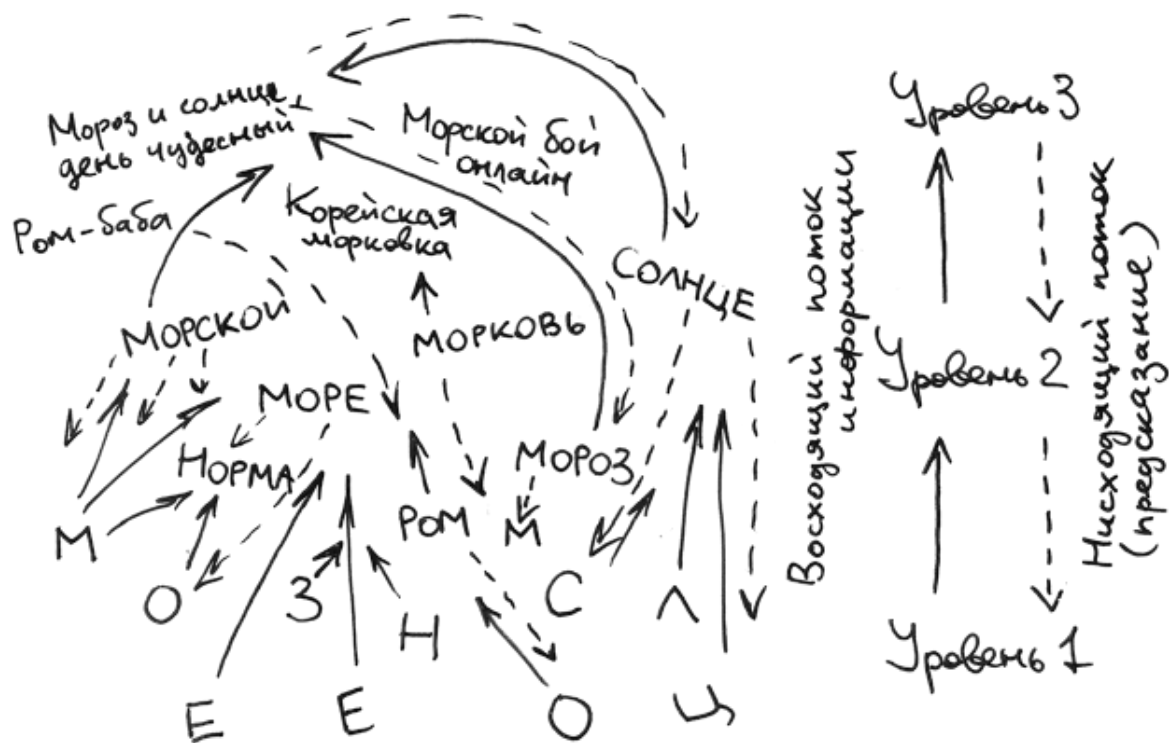 Мороз и солнце,
день чудесный
Морской бой
онлайн
Ром-баба
Корейская
морковка
СОЛНЦЕ
МОРСКОЙ
МОРКОВЬ
МОРЕ
НОРМА
МОРОЗ
М
РОМ
М
О
З
Н
С
Л
Е
Е
О
Ц
Восходящий поток
информации
Уровень 3
Уровень 2
Уровень 1
Нисходящий поток
(предсказание)